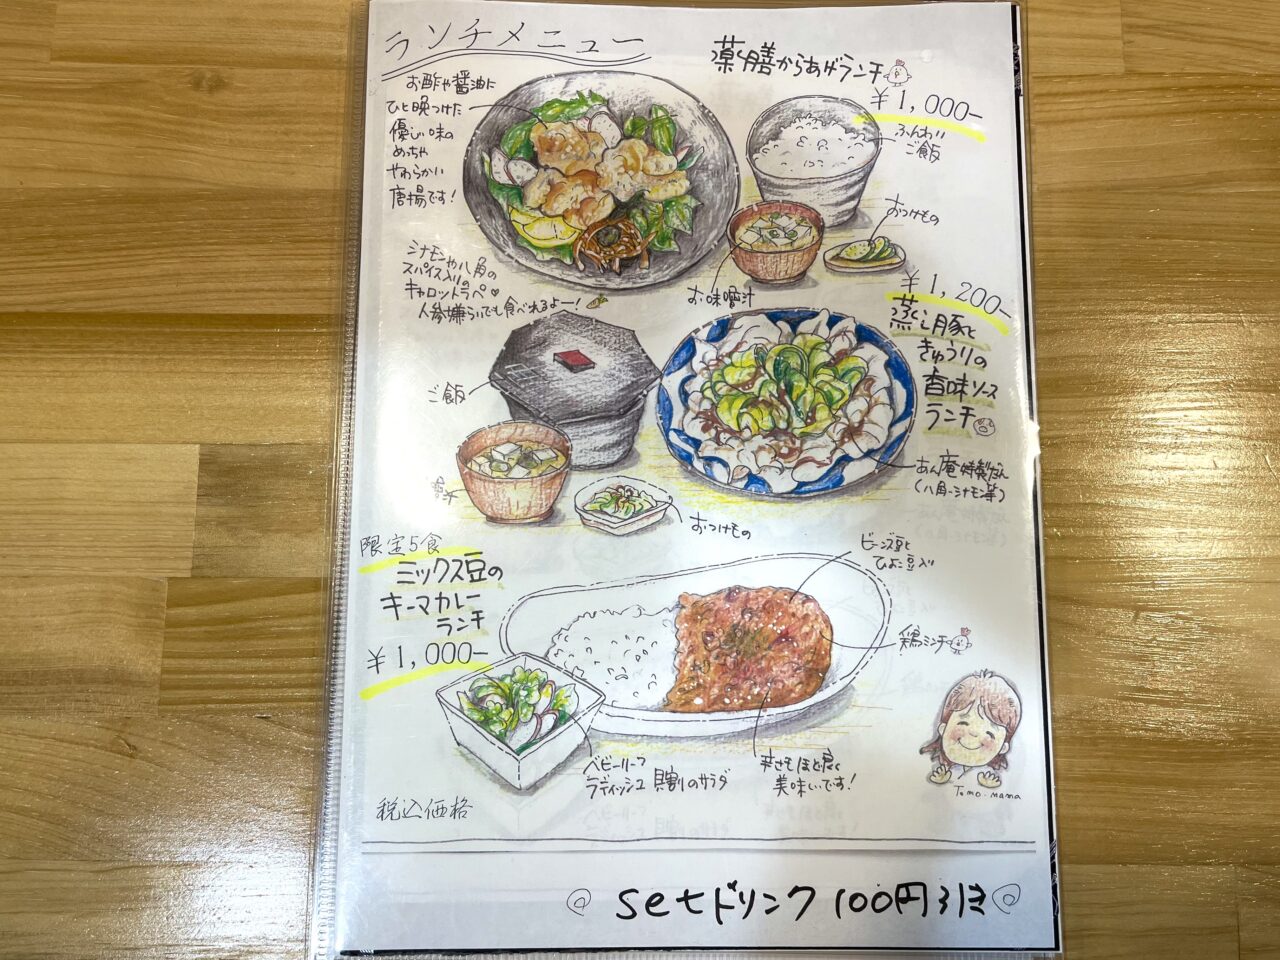 ランチメニュー
薬膳からあげランチ
¥1,000-
お酢や醤油に
ひと晩つけた
優しい味の
めっちゃ
やわらかい
唐揚です!
ふんわり
ご飯
おつけもの
お味噌汁
シナモンや八角の
スパイス入りの
キャロットラペ♥
人参嫌いでも食べれるよー!
¥1,200-
蒸し豚と
きゅうりの
香味ソース
ランチ
ご飯
あん庵特製だれ
(八角・シナモン等)
おつけもの
限定5食
ミックス豆の
キーマカレー
ランチ
¥1,000-
ビーンズ豆と
ひよこ豆入り
鶏ミンチ
ベビーリーフ
ラディッシュ
貝割のサラダ
辛さもほど良く
美味いです!
Tomo-mama
税込価格
setドリンク100円引き